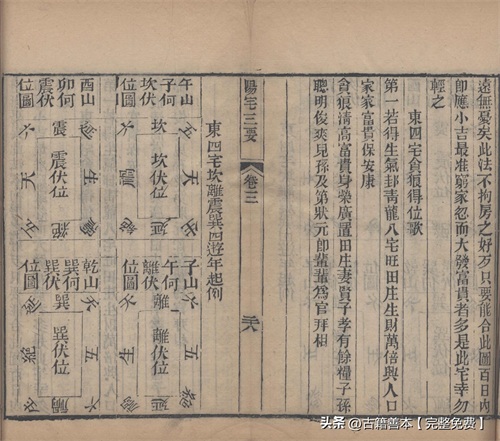 遠無憂矣此法不拘房之好歹只要能合此圖百日內
即應小吉最准窮家忽而大發富貴者多是此宅幸勿
輕之
東四宅貪狼得位歌
第一若得生氣卦靑龍入宅旺田庄生財萬倍興人口
家家富貴保安康
貪狼淸高富貴身榮廣置田庄妻賢子孝有餘糧子孫
聰明俊爽見孫及第狀元郎輩輩為官拜相
陽宅三要
卷三
東四宅坎離震巽四遊年起例
午山
子何
坎伏
位圖
坎
坎伏位
五
天
生
禍
六
子山
午何
離伏
位圖
離
離伏位
六
五
延
禍
生
酉山
卯何
震伏
位圖
震
震伏位
生
禍
天
五
六
乾山
巽何
巽伏
位圖
巽
巽伏位
六
五
禍
絕
延
头条 @古籍善本【完整免费】